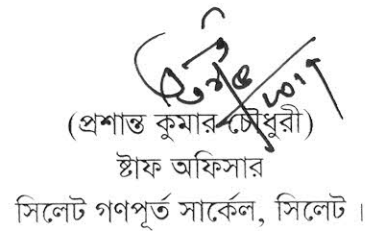 (প্রশান্ত কুমার চৌধুরী)
ষ্টাফ অফিসার
সিলেট গণপূর্ত সার্কেল, সিলেট।